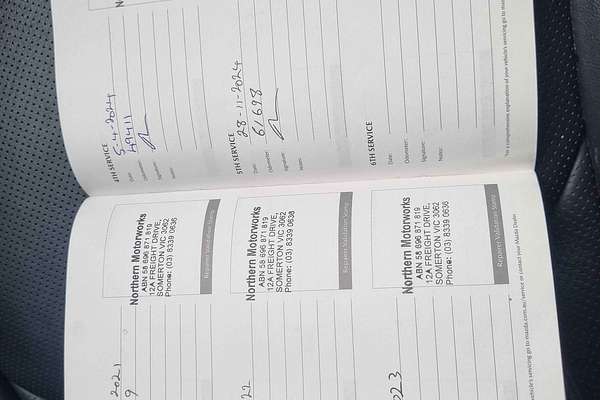 2021
9
Northern Motorworks
ABN 58 696 871 819
12A FREIGHT DRIVE,
SOMERTON VIC 3062
Phone: (03) 8339 0638
Repairer Validation Stamp
22
Northern Motorworks
ABN 58 696 871 819
12A FREIGHT DRIVE,
SOMERTON VIC 3062
Phone: (03) 8339 0638
Repairer Validation Stamp
023
Northern Motorworks
ABN 58 696 871 819
12A FREIGHT DRIVE,
SOMERTON VIC 3062
Phone: (03) 8339 0638
Repairer Validation Stamp
vehicle's servicing go to mazda.com.au/service or contact your Mazda Dealer
4TH SERVICE
Date: 5-4-2024
Odometer: 49411
Signature:
Notes:
5TH SERVICE
Date: 28-11-2024
Odometer: 61698
Signature:
Notes:
6TH SERVICE
Date:
Odometer:
Signature:
Notes:
For a comprehensive explanation of your vehicle's servicing go to